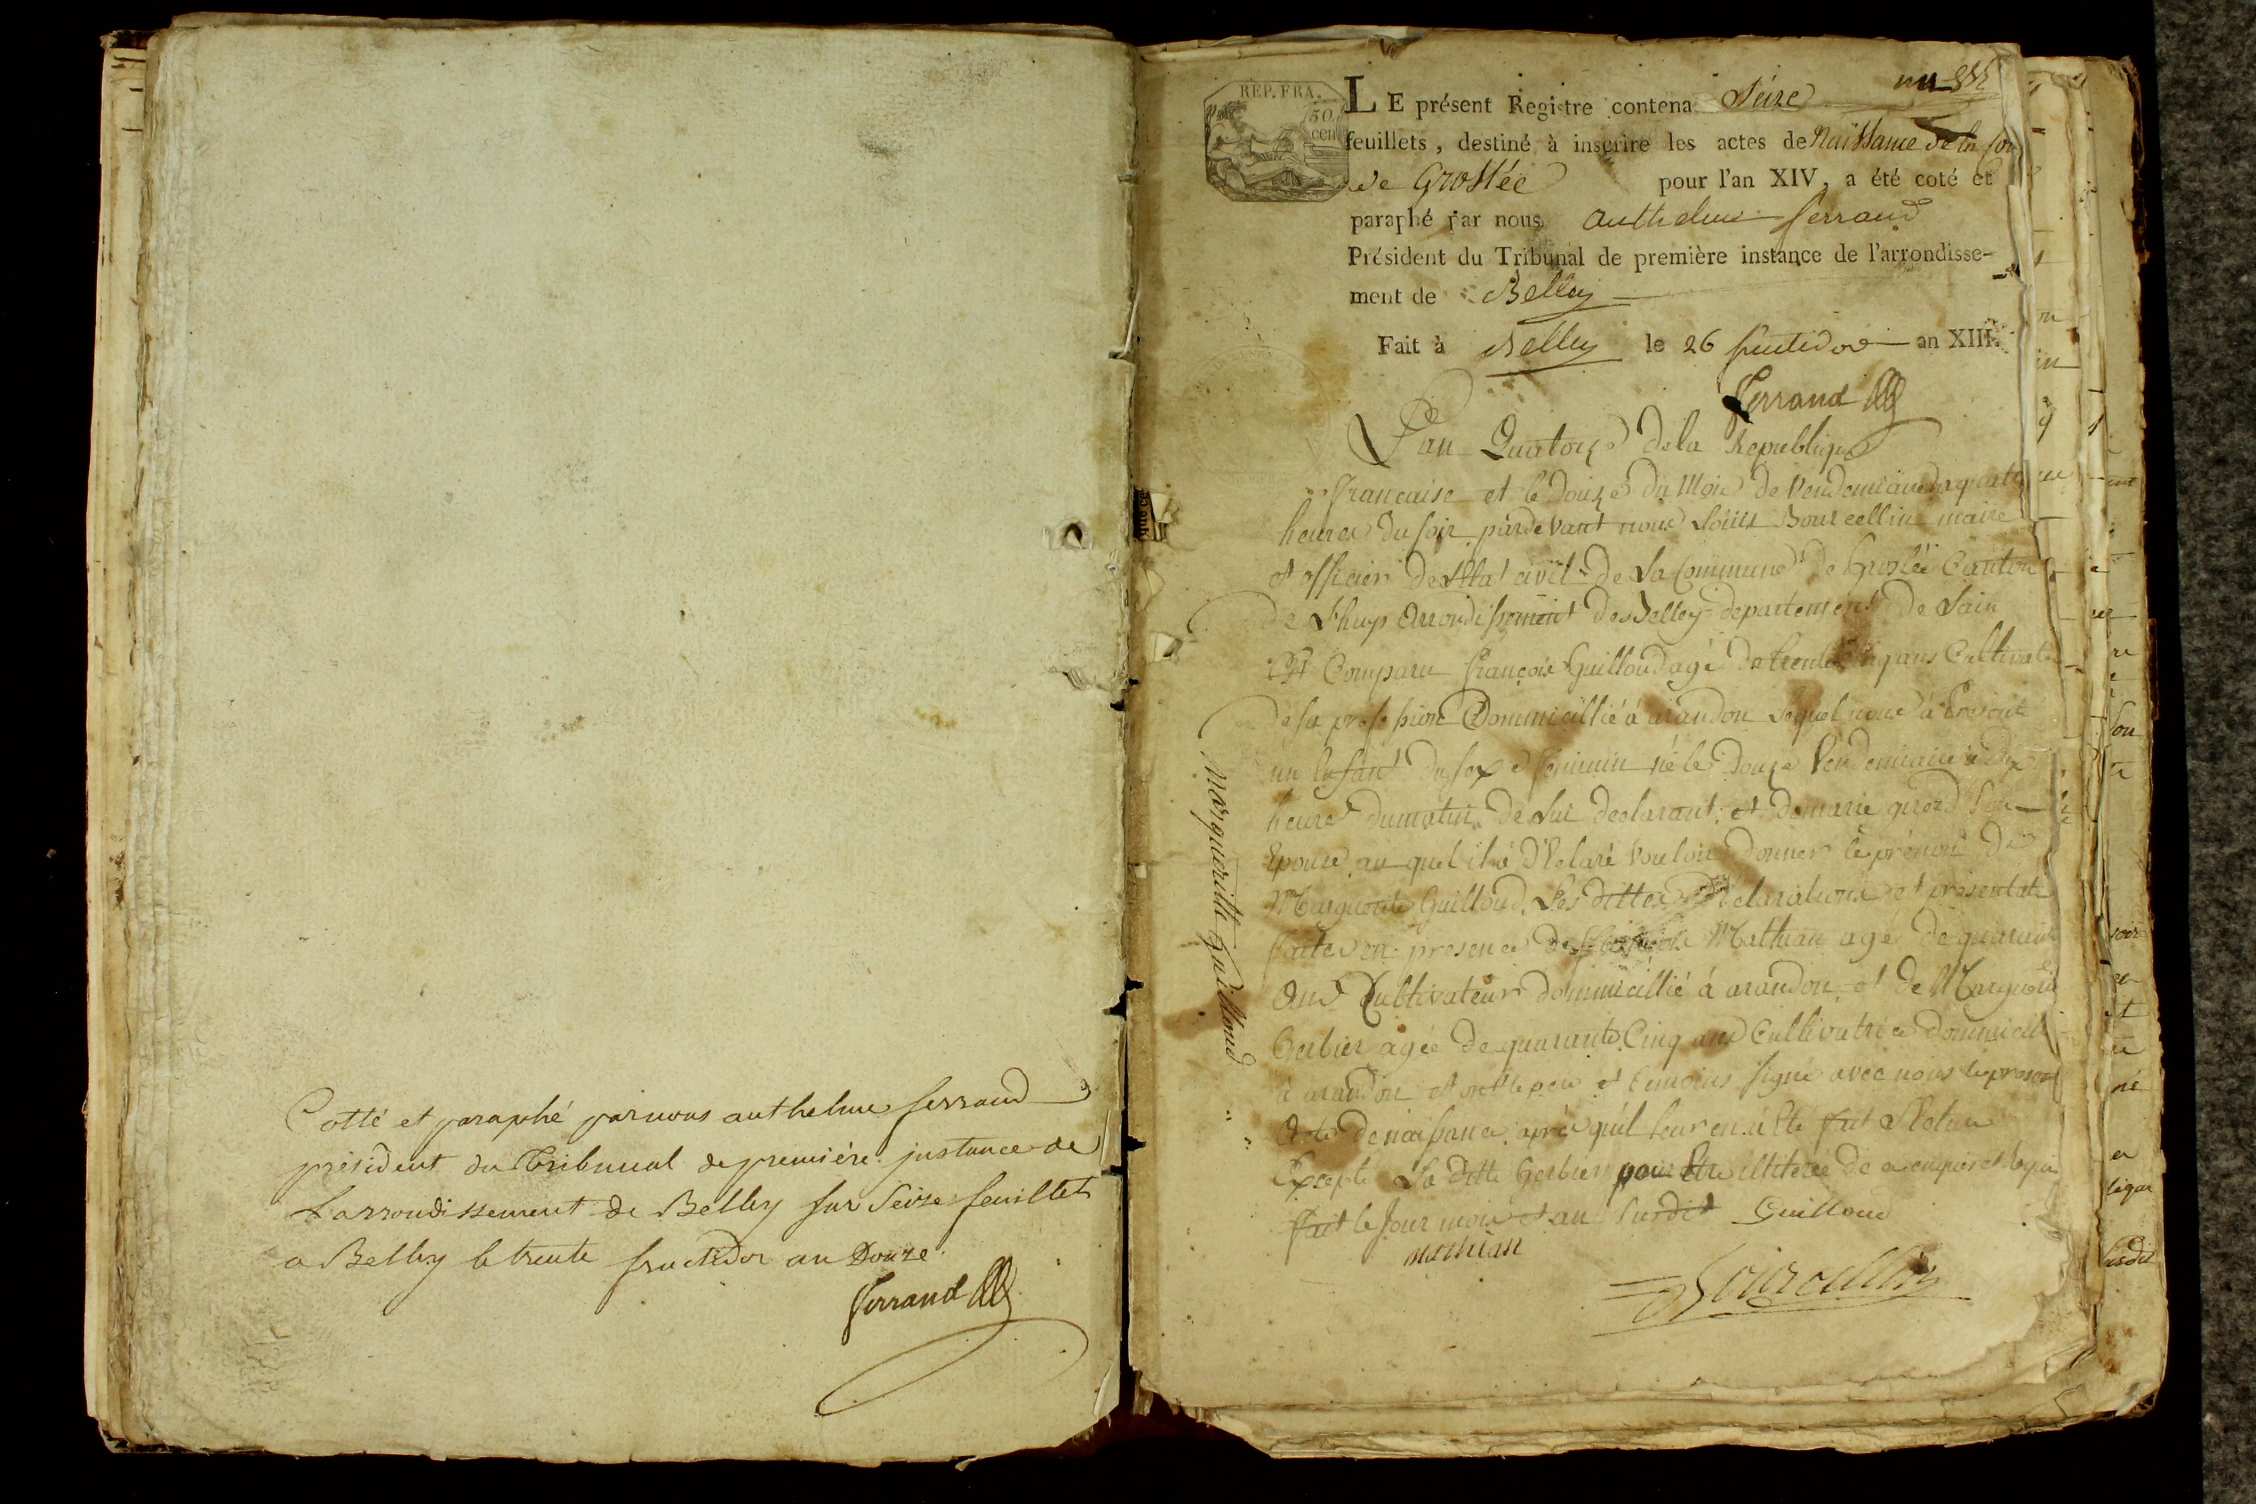 Cotté et paraphé par nous anthelme ferrand
président du Tribunal de première instance de
L'arrondissement de Belley sur Seize feuillets
a Belley le trente fructidor an Douze.
ferrand
REP. FRA.
50 cen
LE présent Registre contena Seize
feuillets, destiné à inscrire les actes de Naissance de la Com
de Groslée pour l'an XIV, a été coté et
paraphé par nous anthelme ferrand
Président du Tribunal de première instance de l'arrondisse-
ment de Belley
Fait à Belley le 26 fructidor an XIII.
ferrand
L'an Quatorze de la Republique
francaise et le douze du Mois de Vendemiaire a quatre
heures du soir pardevant nous Loüis Bourcellin maire
et officier de l'Etat civil de La Commune de Groslée Canton
de Lhuys Arrondissement de Belley departement de Lain
Est Comparu françois Guilloud agé de trente cinq ans Cultivate
de sa profession Dommicillié à arandon Lequel nous à Presenté
un Enfant du sexe feminin né le Douze Vendemiaire à dix
heures du matin de Lui declarant, et de marie girord son
Epouse au quel il à Déclaré Vouloir donner le prénom De
Marguerite Guilloud. Les dittes Déclarations et présentat
faites en presence de Mathian agé de quarante
Ans Cultivateur dommicillié á arandon et de Marguerite
Gerbier agée de quarante Cinq ans Cultivatrice dommicilié
a arandon et ont le pere et temoins signé avec nous le present
Acte de naissance après qu'il leur en à Eté fait Lecture
Excepté La ditte Gerbier pour Etre illiterée de ce enquise et requise
fait le Jour mois et an susdit Guilloud
mathian
Bourcellin
Margueritte Guilloud